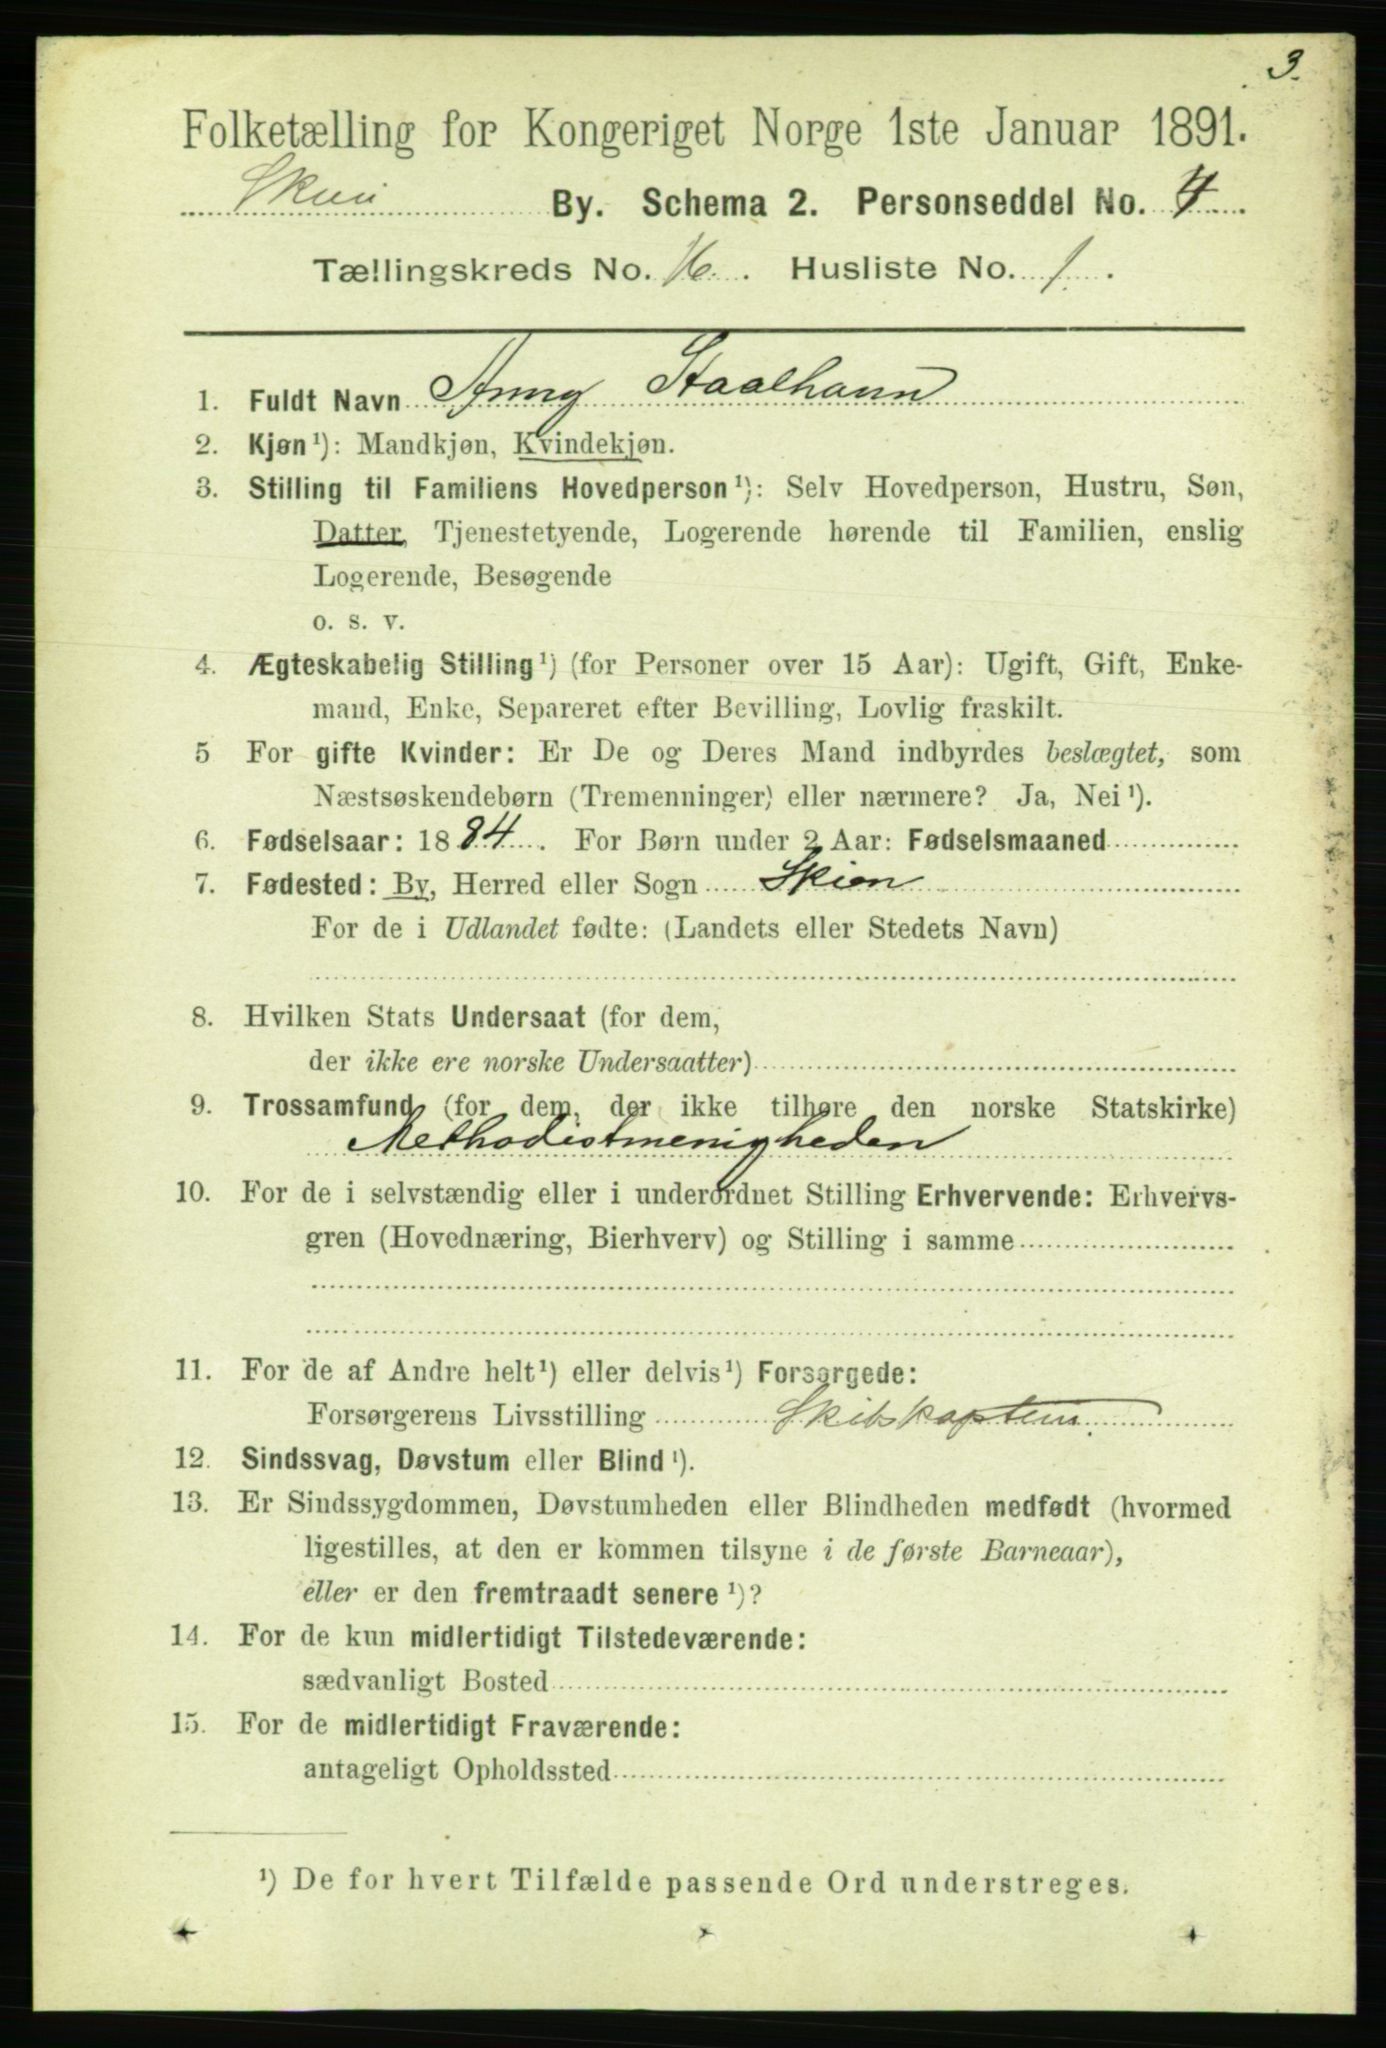 3.
Folketælling for Kongeriget Norge 1ste Januar 1891.
Skien By. Schema 2. Personseddel No. 4.
Tællingskreds No. 16. Husliste No. 1.
1. Fuldt Navn Anny Staalhaun
2. Kjøn ¹): Mandkjøn, Kvindekjøn.
3. Stilling til Familiens Hovedperson ¹): Selv Hovedperson, Hustru, Søn,
Datter, Tjenestetyende, Logerende hørende til Familien, enslig
Logerende, Besøgende
o. s. v.
4. Ægteskabelig Stilling ¹) (for Personer over 15 Aar): Ugift, Gift, Enke-
mand, Enke, Separeret efter Bevilling, Lovlig fraskilt.
5 For gifte Kvinder: Er De og Deres Mand indbyrdes beslægtet, som
Næstsøskendebørn (Tremenninger) eller nærmere? Ja, Nei ¹).
6. Fødselsaar: 1884. For Børn under 2 Aar: Fødselsmaaned
7. Fødested: By, Herred eller Sogn Skien
For de i Udlandet fødte: (Landets eller Stedets Navn)
8. Hvilken Stats Undersaat (for dem,
der ikke ere norske Undersaatter)
9. Trossamfund (for dem, der ikke tilhøre den norske Statskirke)
Methodistmenigheden
10. For de i selvstændig eller i underordnet Stilling Erhvervende: Erhvervs-
gren (Hovednæring, Bierhverv) og Stilling i samme
11. For de af Andre helt ¹) eller delvis ¹) Forsørgede:
Forsørgerens Livsstilling Skibskaptein.
12. Sindssvag, Døvstum eller Blind ¹).
13. Er Sindssygdommen, Døvstumheden eller Blindheden medfødt (hvormed
ligestilles, at den er kommen tilsyne i de første Barneaar),
eller er den fremtraadt senere ¹)?
14. For de kun midlertidigt Tilstedeværende:
sædvanligt Bosted
15. For de midlertidigt Fraværende:
antageligt Opholdssted
¹) De for hvert Tilfælde passende Ord understreges.